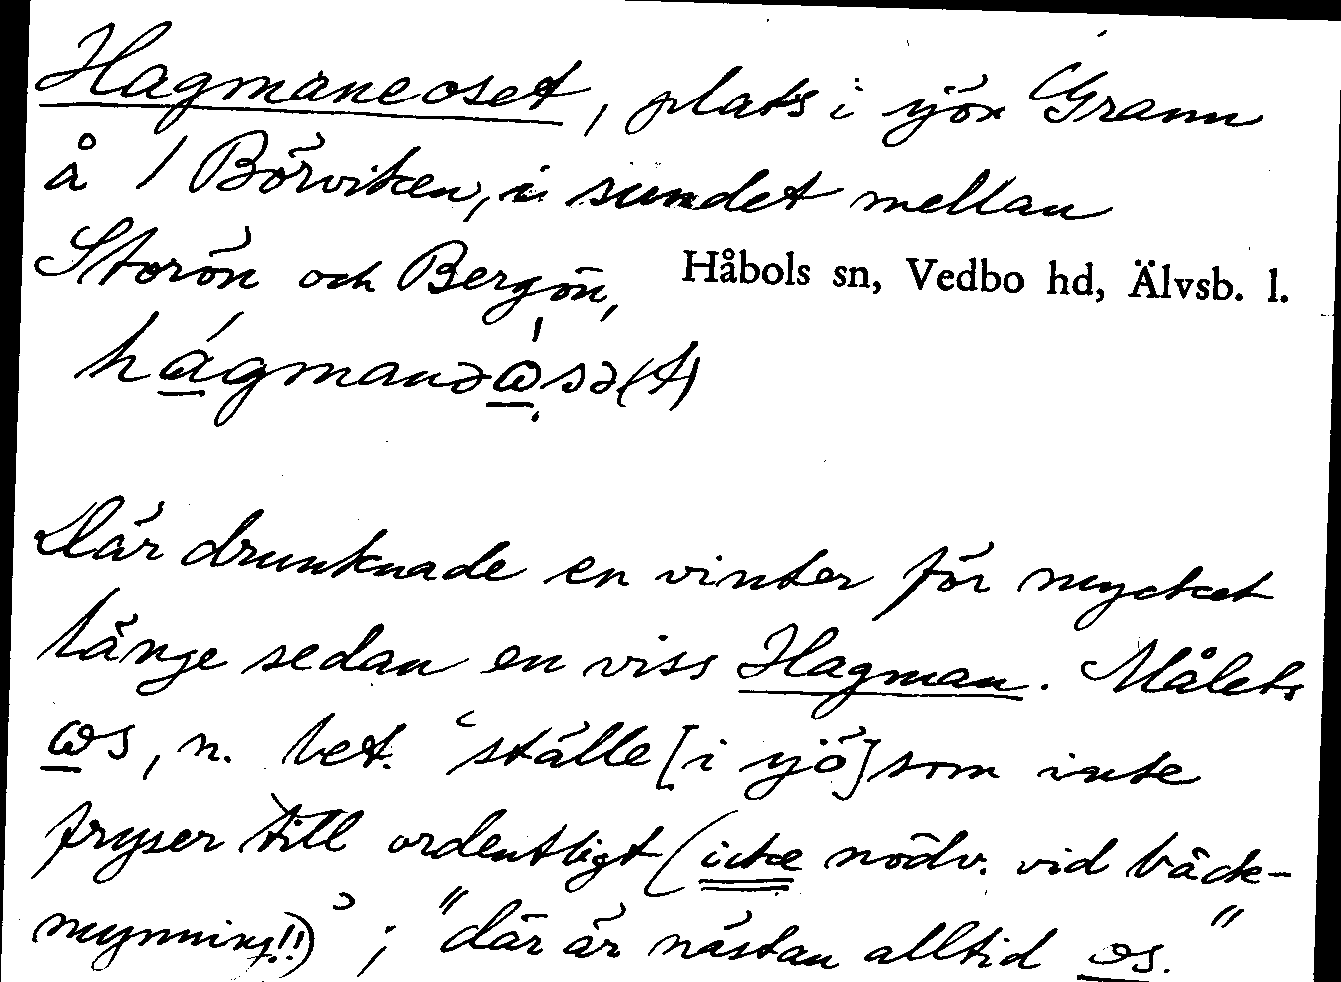 Hagmaneoset, plats i sjön Grann
å / Börviken, i sundet mellan
Storön och Bergön, Håbols sn, Vedbo hd, Älvsb. l.
hágmanəὼ̣sə(t)
Där drunknade en vinter för mycket
länge sedan en viss Hagman. Målets
ωs, n. bet. ‘ställe [i sjö] som inte
fryser till ordentligt (icke nödv. vid bäck-
mynning!!)’; "där är nästan alltid ωs."